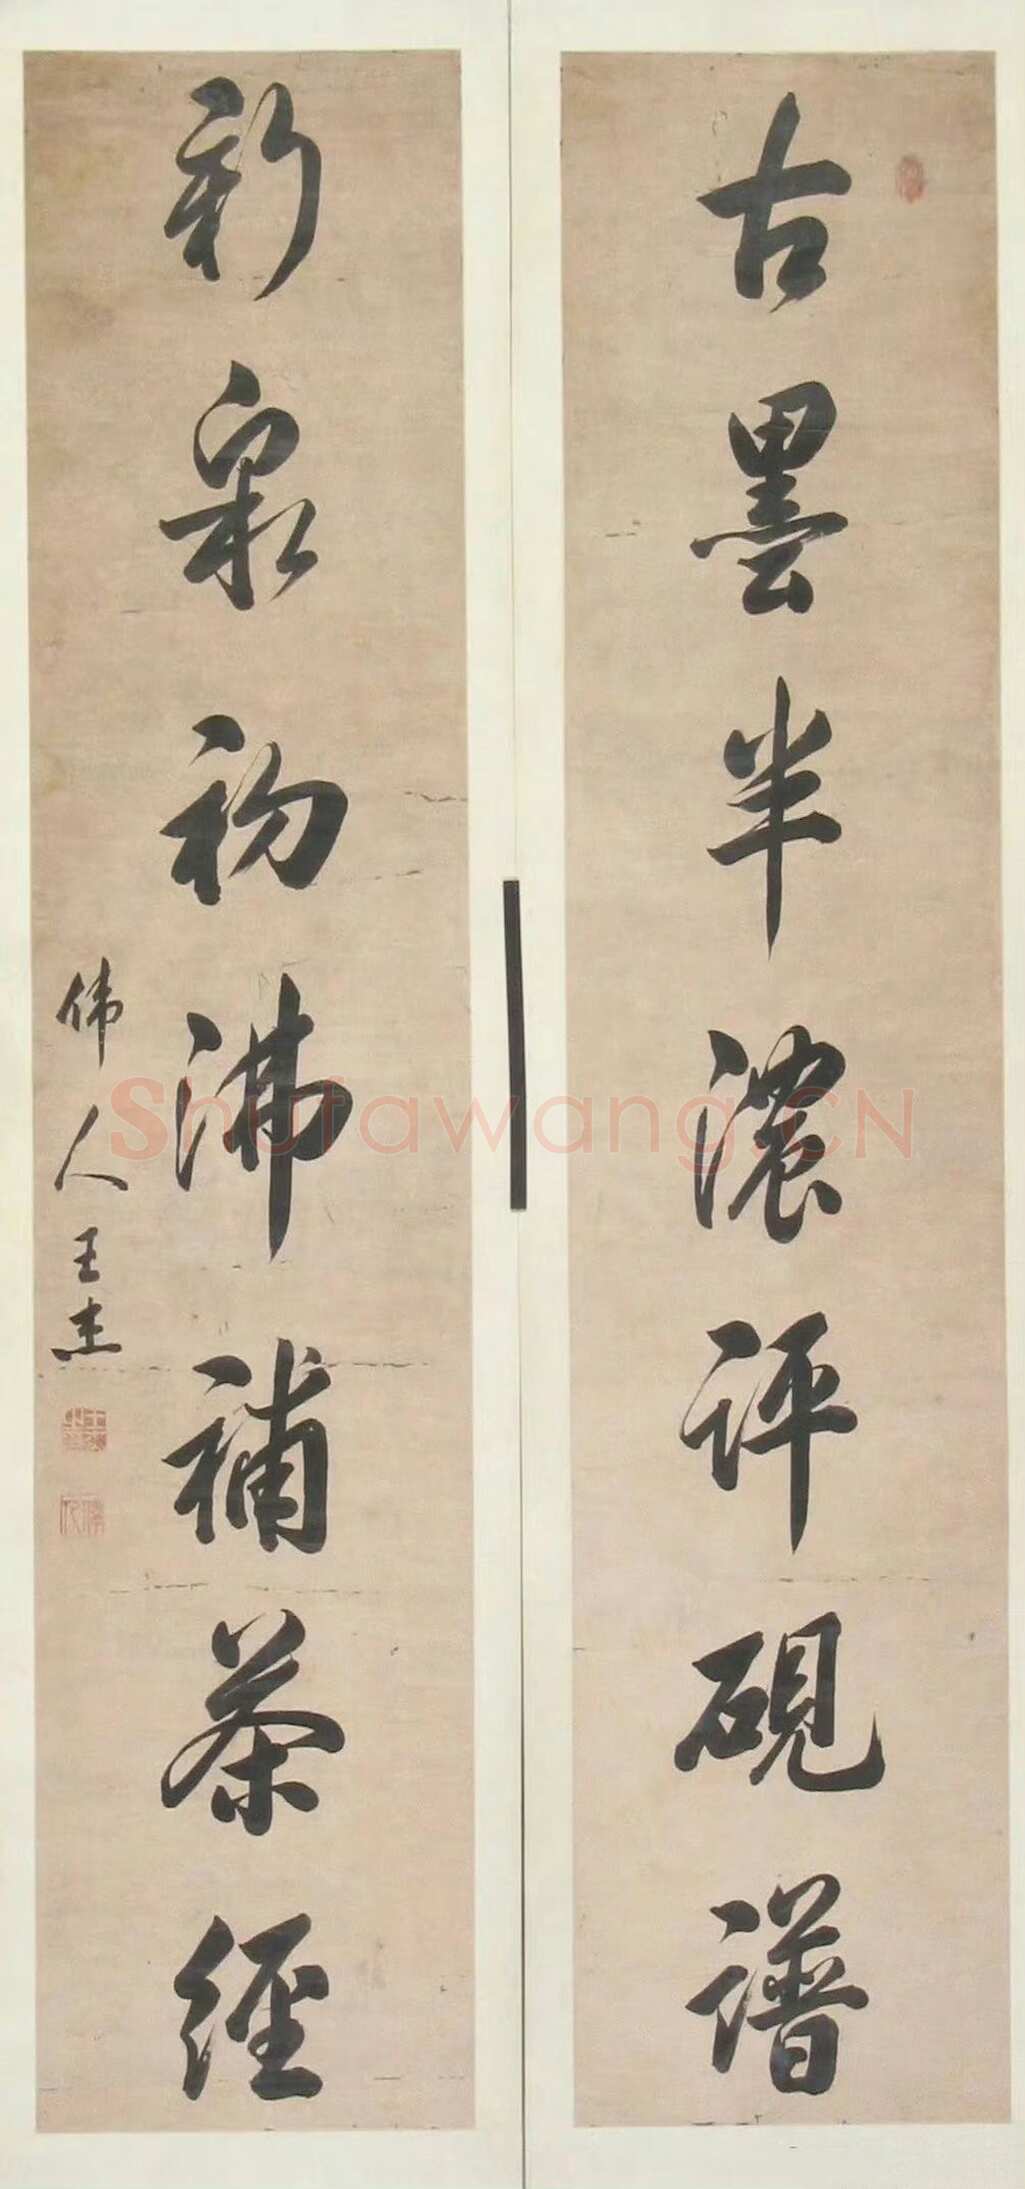 古墨半濃評硯譜
新泉初沸補茶經
偉人王杰
Shufawang.CN